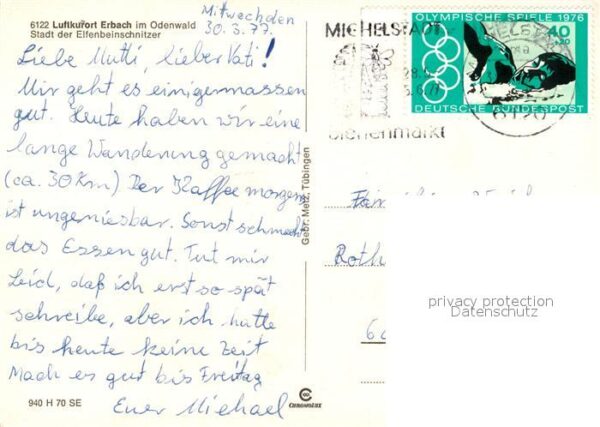 6122 Luftkurort Erbach im Odenwald
Stadt der Elfenbeinschnitzer
Mittwoch den
30.3.77.
Liebe Mutti, lieber Vati!
Mir geht es einigermassen
gut. Heute haben wir eine
lange Wanderung gemacht
(ca. 30 Km) Der Kaffee morgens
ist ungeniesbar. Sonst schmeckt
das Essen gut. Tut mir
Leid, daß ich erst so spät
schreibe, aber ich hatte
bis heute keine Zeit
Mach es gut bis Freitag
Euer Michael
940 H 70 SE
CHROMOLUX
Gebr. Metz, Tübingen
MICHELSTADT
Bienenmarkt
OLYMPISCHE SPIELE 1976
40
+20
DEUTSCHE BUNDESPOST
6120
Familie
Roth
6
privacy protection
Datenschutz